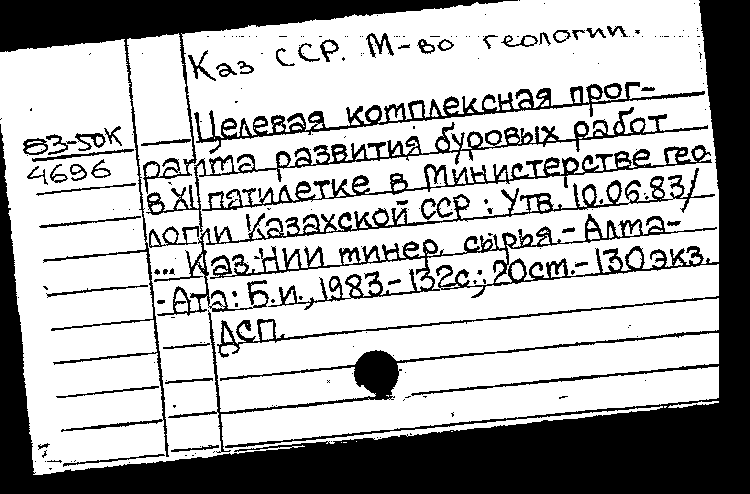 Каз ССР. М-во геологии.
83-50К
4696
Целевая комплексная прог-
рамма развития буровых работ
в XI пятилетке в Министерстве гео-
логии Казахской ССР : Утв. 10.06.83/
... Каз. НИИ минер. сырья.- Алма-
-Ата: Б.и., 1983.- 132с.; 20см.- 130экз.
ДСП.